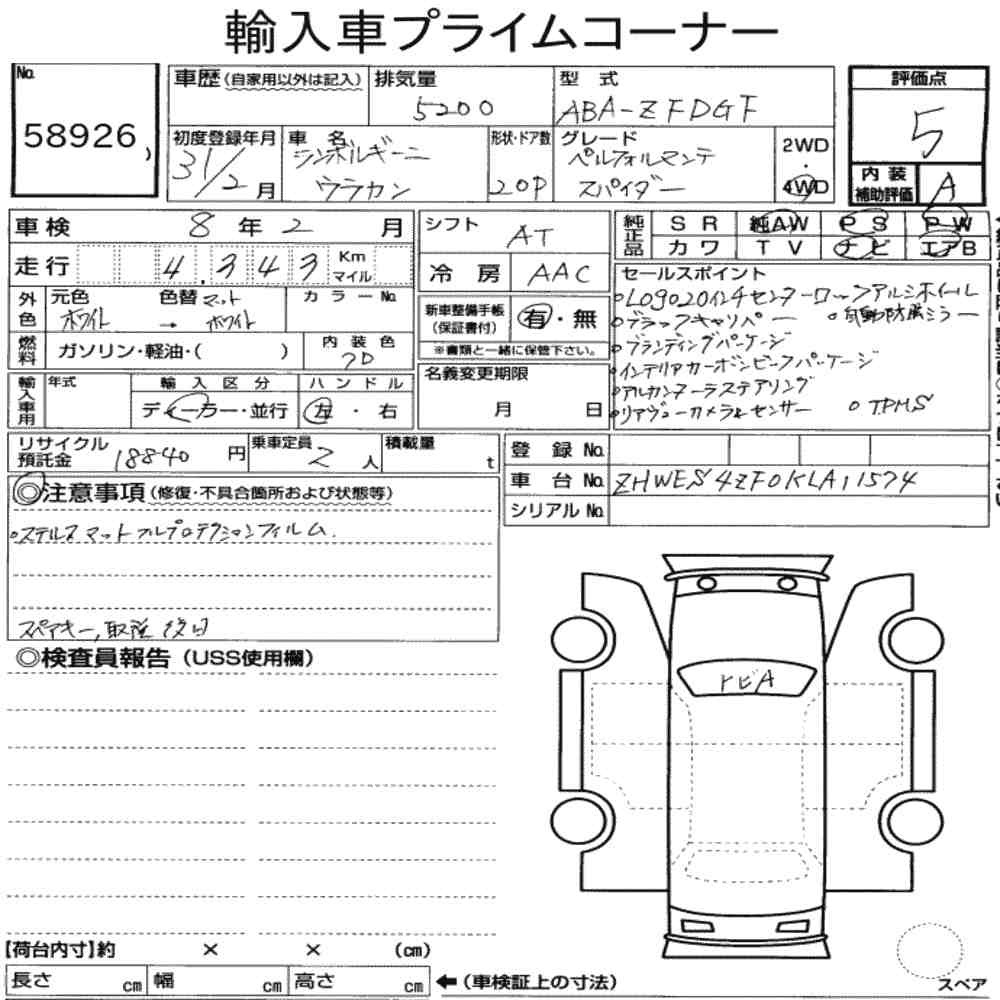 輸入車プライムコーナー
No. 58926
車歴 (自家用以外は記入)
排気量 5200
型式 ABA-ZFDGF
評価点 5
初度登録年月 31/2月
車名 ランボルギーニ ウラカン
形状・ドア数 2OP
グレード ペルフォルマンテ スパイダー
2WD・4WD
内装補助評価 A
車検 8年2月
シフト AT
純正品 SR 純AW PS PW
カワ TV ナビ エアB
走行 4,343 Km マイル
冷房 AAC
セールスポイント
○LOGO20インチセンターロックアルミホイール
○ブラックキャリパー ○自動防眩ミラー
○ブランディングパッケージ
○インテリアカーボンピースパッケージ
○アルカンターラステアリング
○リアヴューカメラ&センサー ○TPMS
外色 元色 ホワイト → 色替 マットホワイト
カラーNo.
新車整備手帳 (保証書付) 有・無
※書類と一緒に保管下さい。
燃料 ガソリン・軽油・( )
内装色 クロ
名義変更期限 月 日
輸入車用 年式
輸入区分 ディーラー・並行
ハンドル 左・右
リサイクル預託金 18840円
乗車定員 2人
積載量 t
登録No.
車台No. ZHWES4ZF0KLA11574
シリアルNo.
◎注意事項 (修復・不具合箇所および状態等)
○ステルスマットフルプロテクションフィルム.
スペアキー,取説 後日
◎検査員報告 (USS使用欄)
トビA
【荷台内寸】約 × × (cm)
長さ cm 幅 cm 高さ cm ← (車検証上の寸法)
スペア